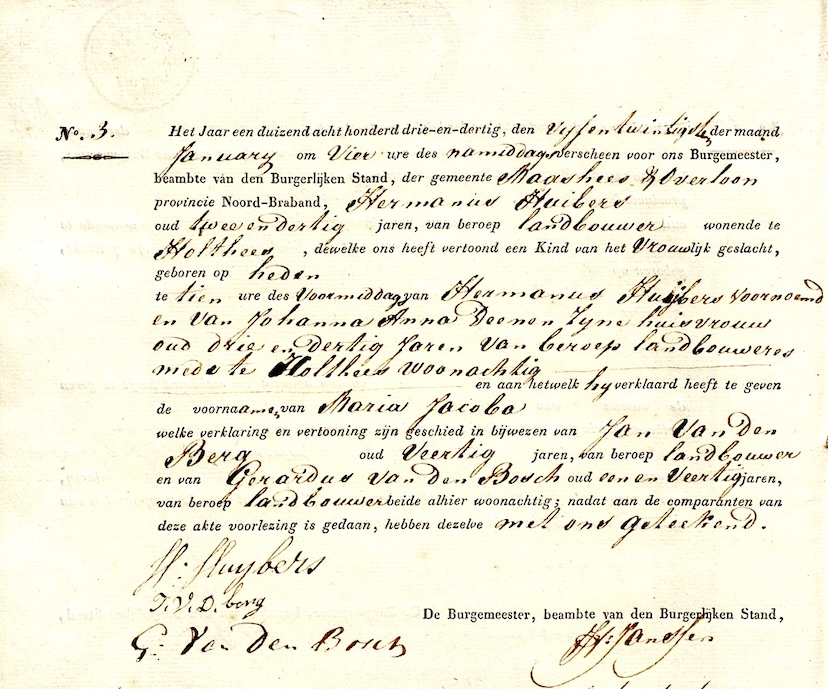 No. 3. Het Jaar een duizend acht honderd drie-en-dertig, den vyfentwintigste der maand
January om Vier ure des namiddags verscheen voor ons Burgemeester,
beambte van den Burgerlijken Stand, der gemeente Maashees & Overloon
provincie Noord-Braband, Hermanus Huibers
oud twee endertig jaren, van beroep landbouwer wonende te
Holthees, dewelke ons heeft vertoond een Kind van het Vrouwlijk geslacht,
geboren op heden
te tien ure des Voormiddags van Hermanus Huijbers voornoemd
en van Johanna Anna Deenen Zyne huisvrouw
oud drie en dertig Jaren van beroep landbouweres
mede te Holthees woonachtig
en aan hetwelk hy verklaard heeft te geven
de voornaame, van Maria Jacoba
welke verklaring en vertooning zijn geschied in bijwezen van Jan Van den
Berg oud Veertig jaren, van beroep landbouwer
en van Gerardus van den Bosch oud een en Veertig jaren,
van beroep landbouwer beide alhier woonachtig; nadat aan de comparanten van
deze akte voorlezing is gedaan, hebben dezelve met ons geteekend.
H: Huybers
J. V. D. berg
De Burgemeester, beambte van den Burgerlijken Stand,
G. Van Den Bosch
Janssen